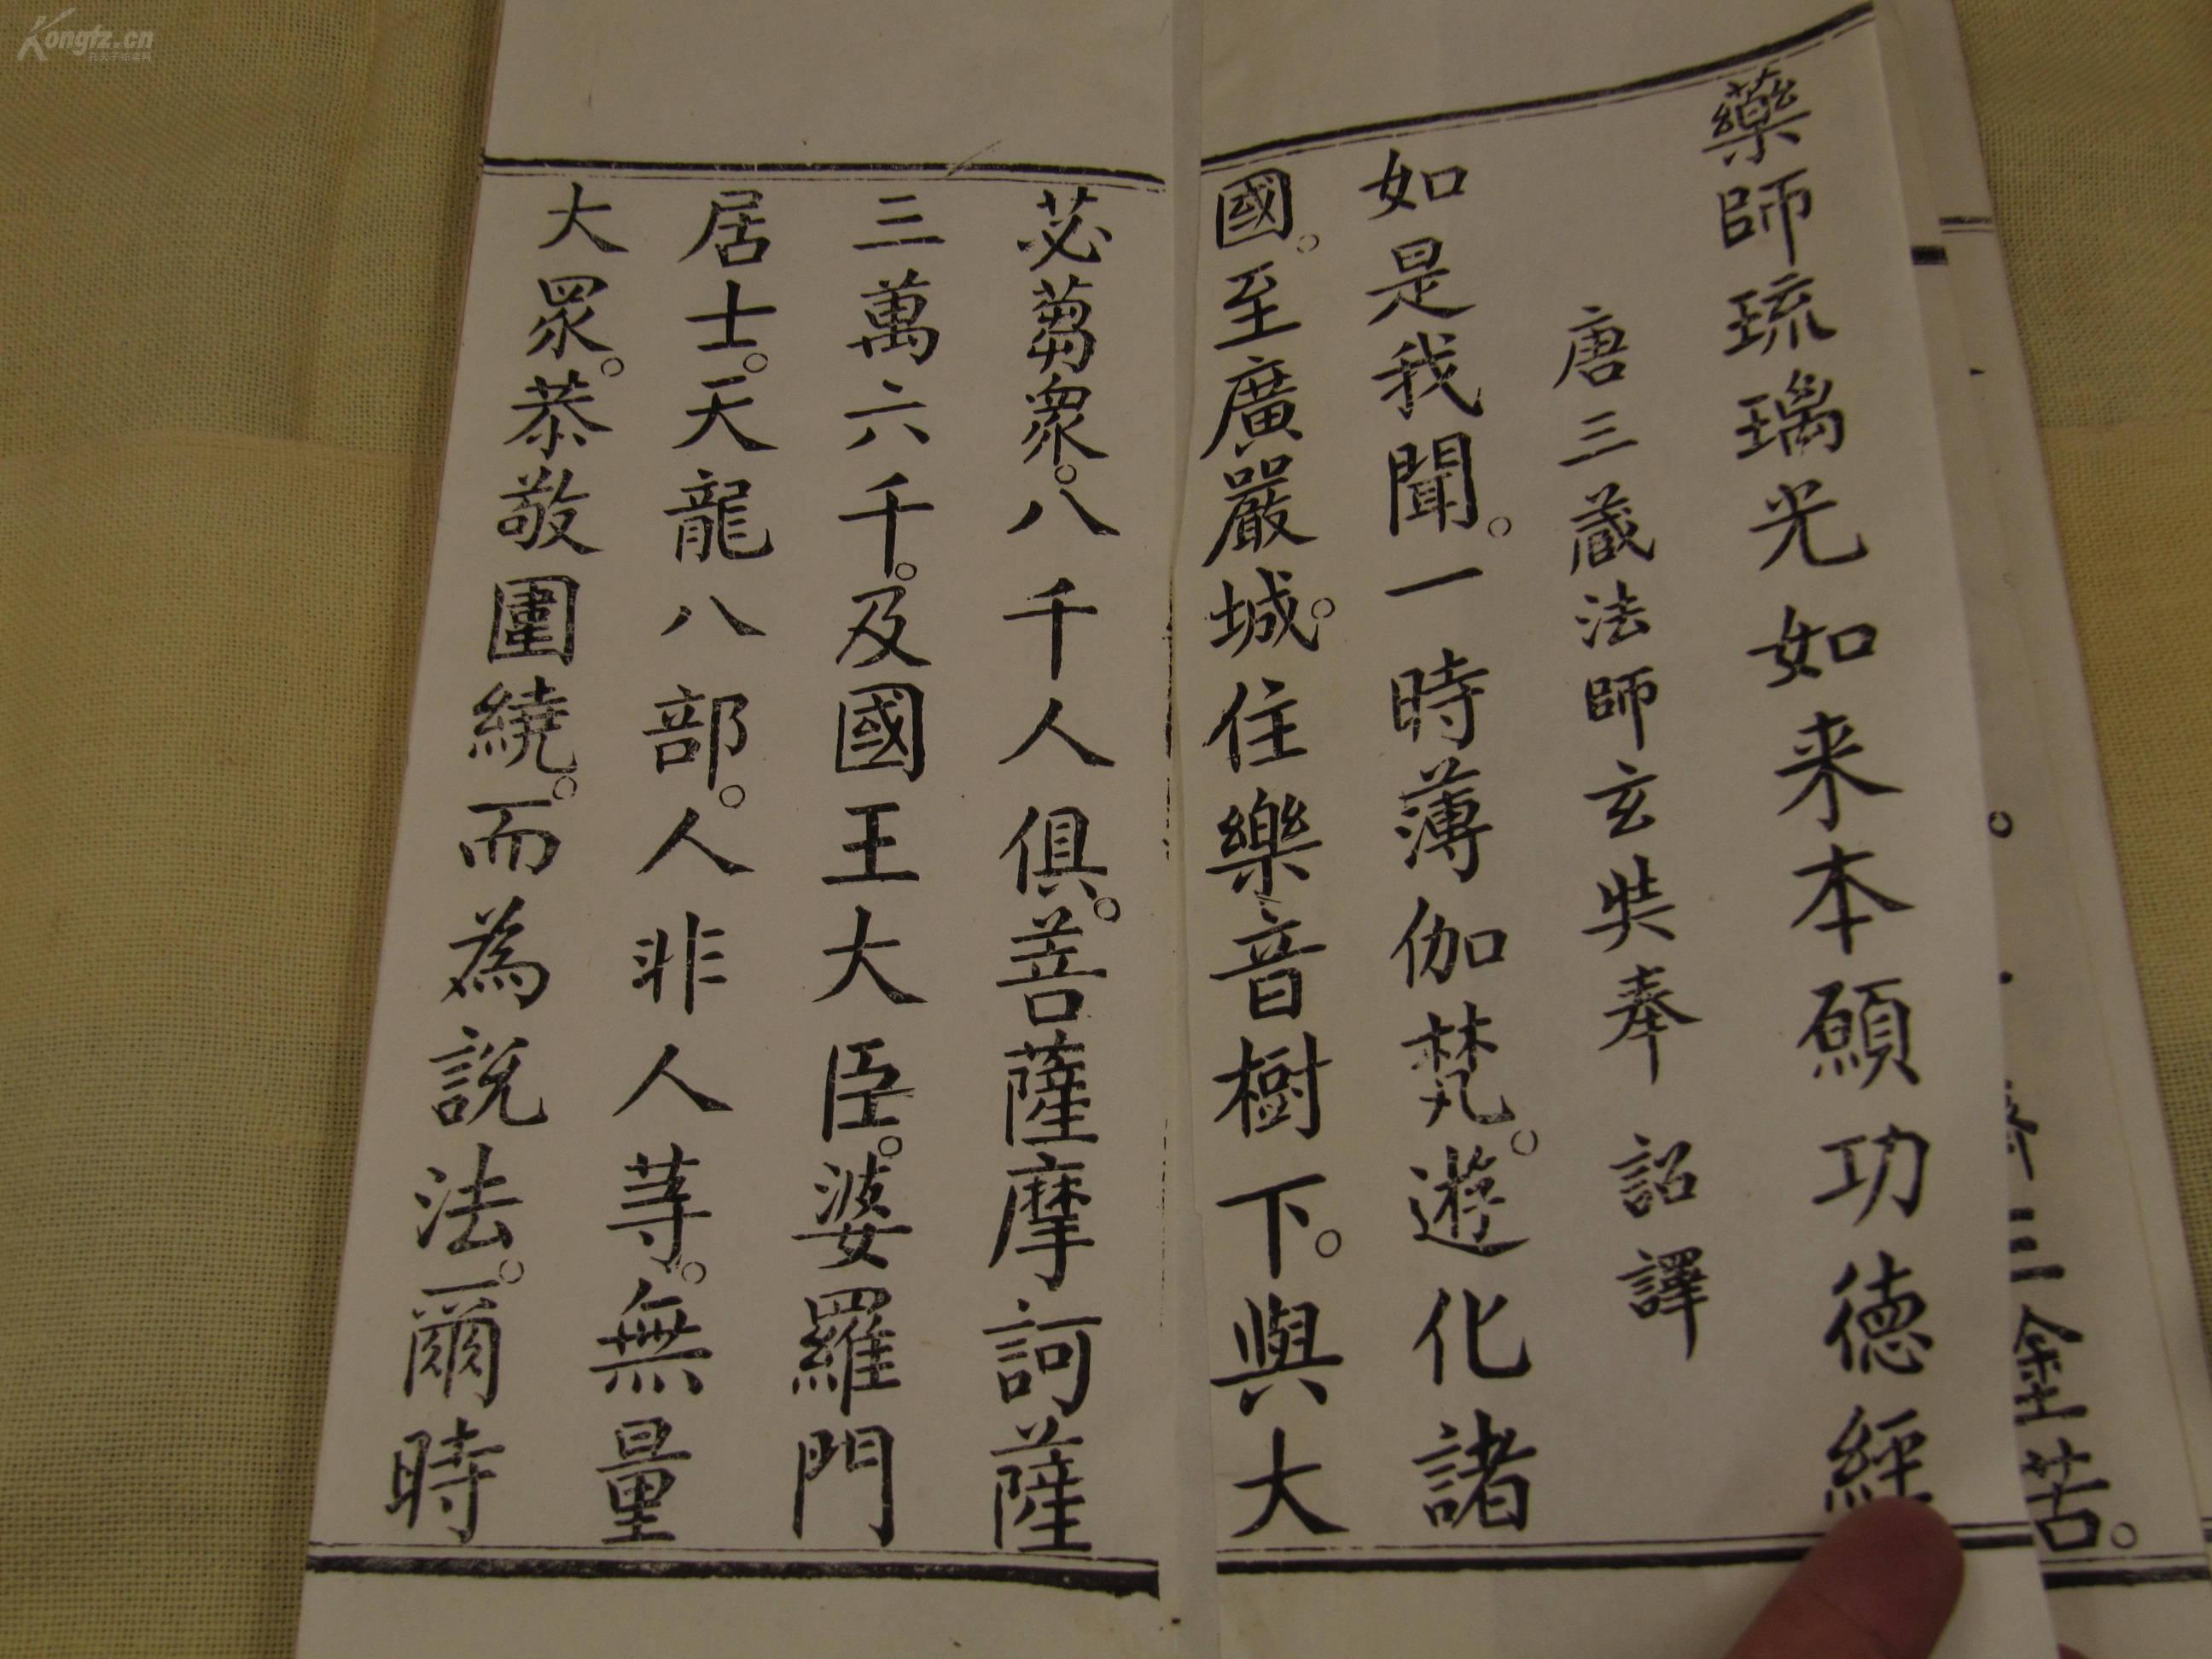 藥師琉璃光如来本願功德經
唐三藏法師玄奘奉 詔譯
如是我聞。一時薄伽梵。遊化諸
國。至廣嚴城。住樂音樹下。與大
苾蒭衆。八千人俱。菩薩摩訶薩
三萬六千。及國王大臣。婆羅門
居士。天龍八部。人非人等。無量
大眾。恭敬圍繞。而為說法。爾時
三金苦。
Kongfz.cn